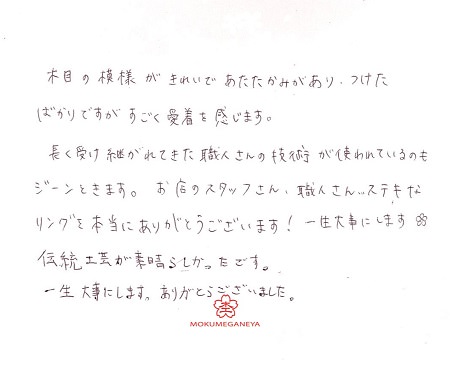 木目の模様がきれいであたたかみがあり、つけた
ばかりですがすごく愛着を感じます。
長く受け継がれてきた職人さんの技術が使われているのも
ジーンときます。お店のスタッフさん、職人さん、ステキな
リングを本当にありがとうございます！一生大事にします
伝統工芸が素晴らしかったです。
一生大事にします。ありがとうございました。
MOKUMEGANEYA